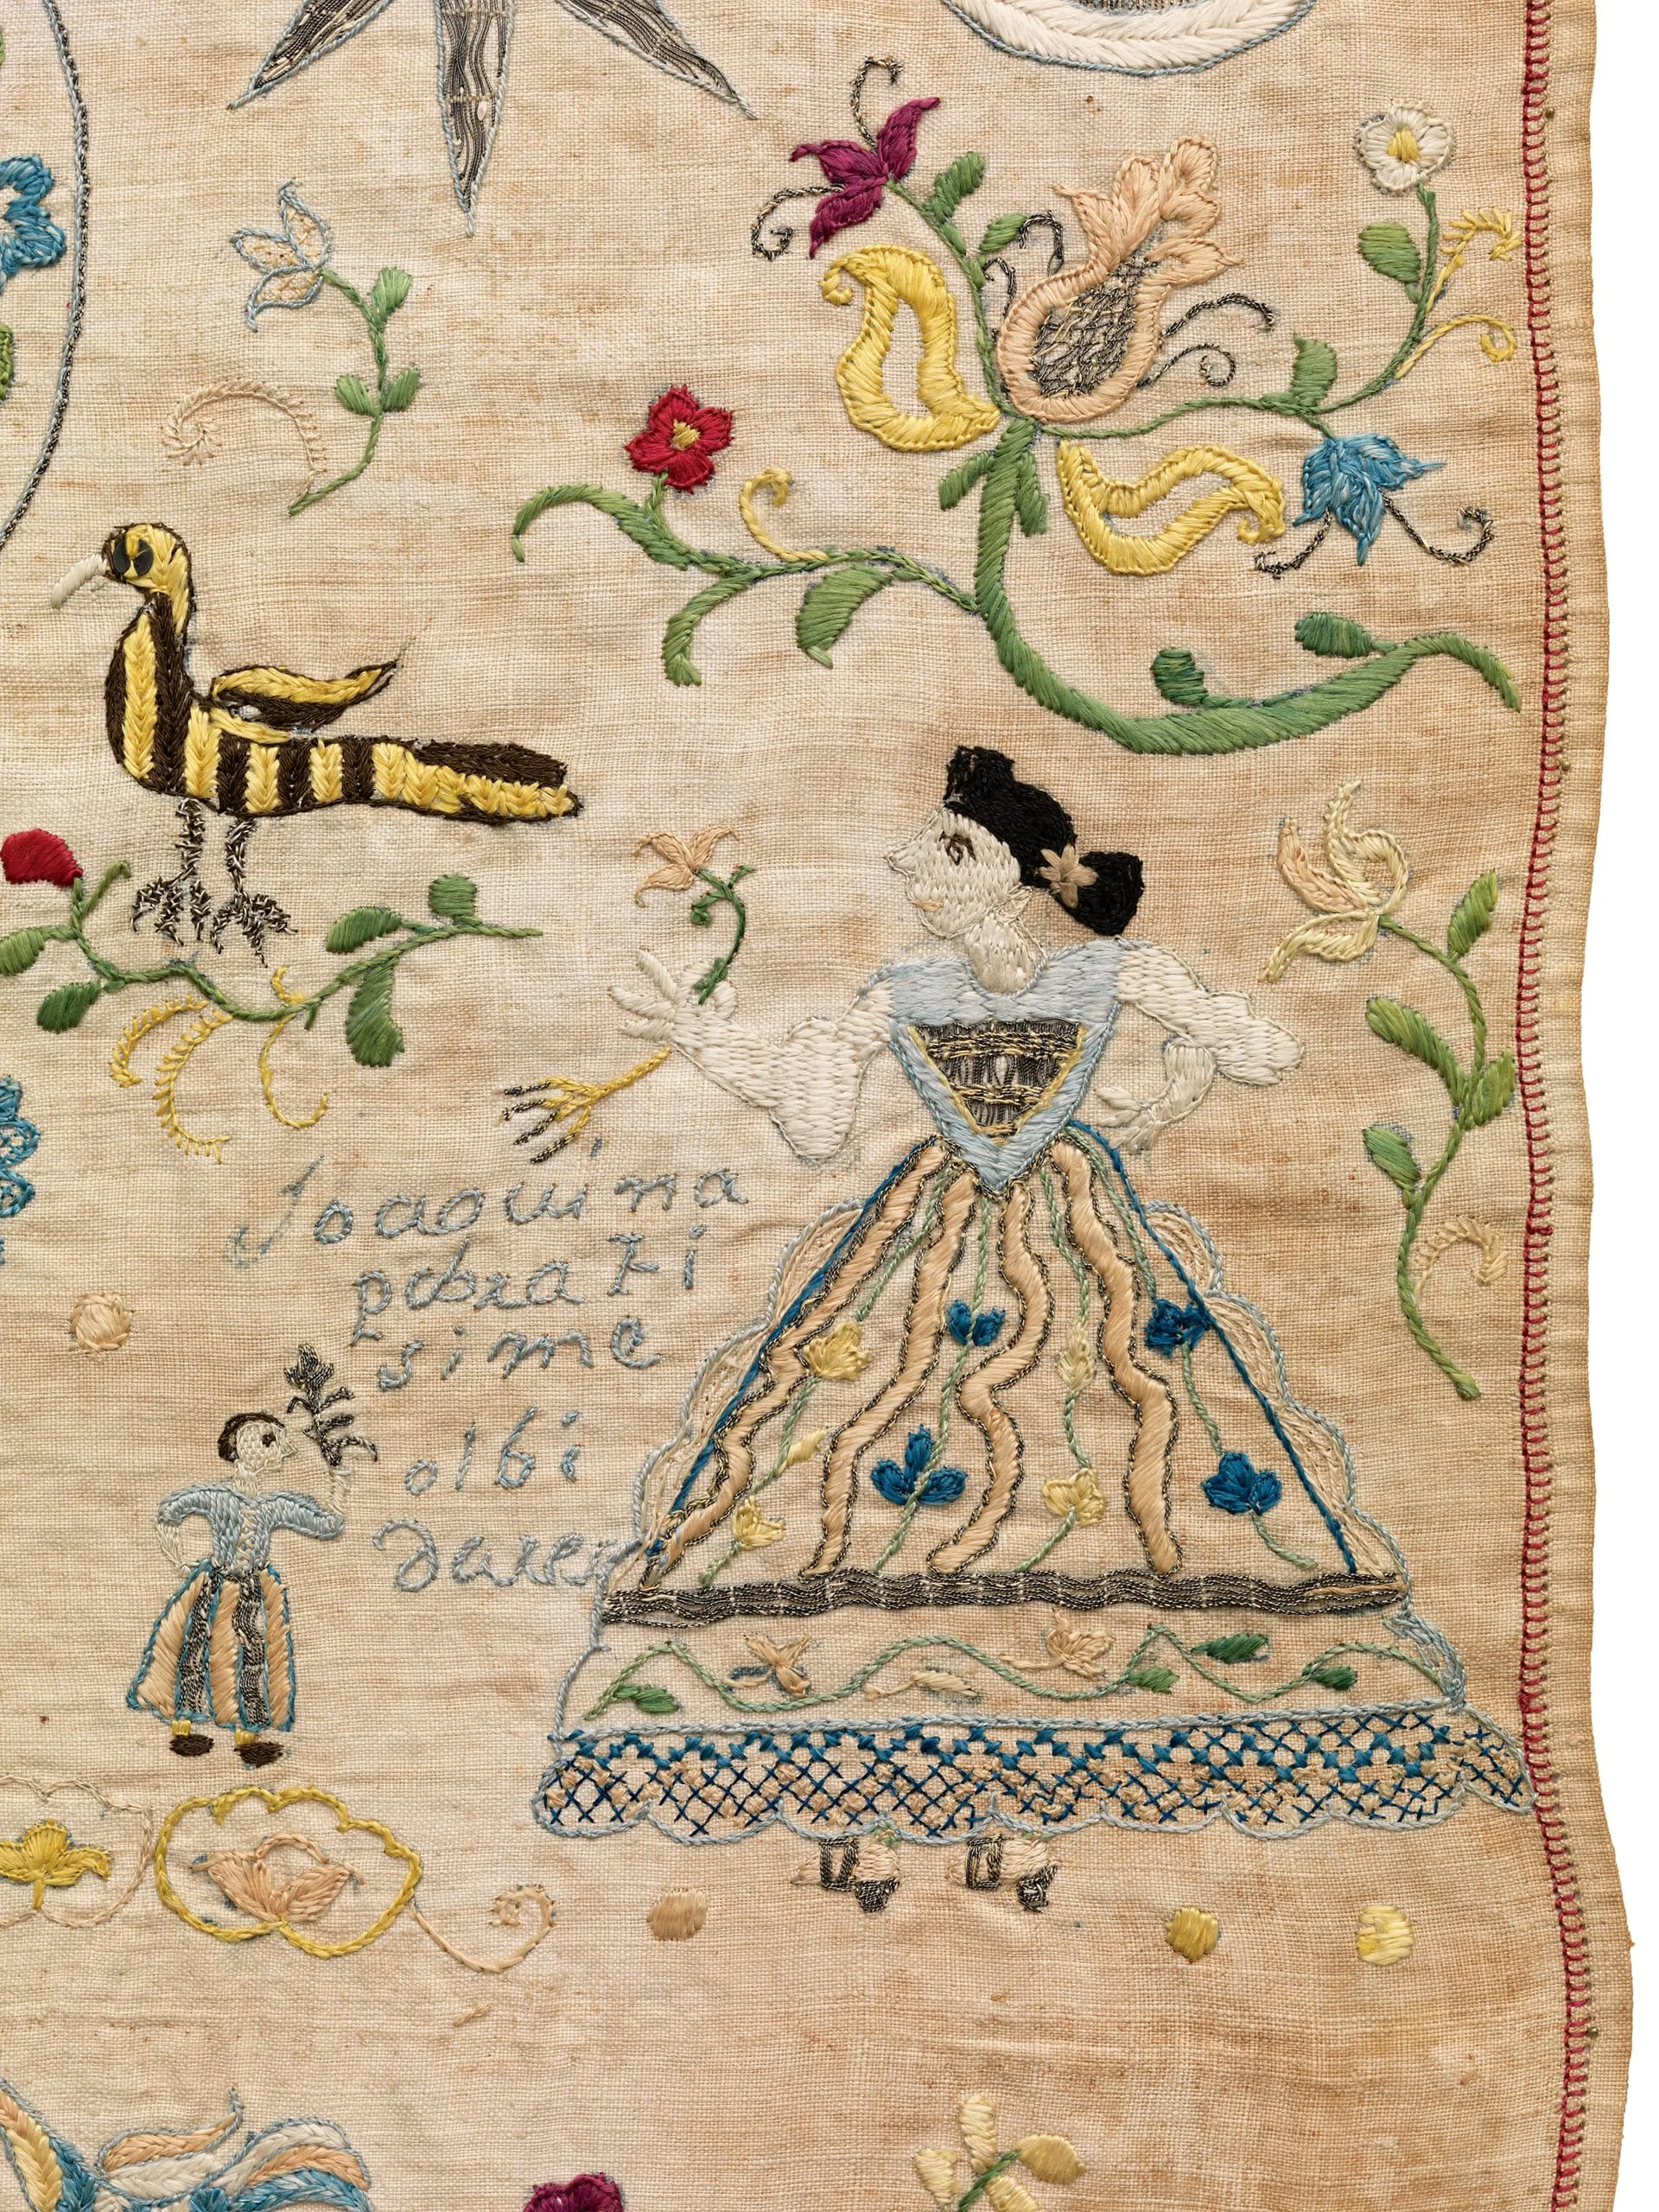 Joaquina
pobrati
sime
olbi
dares